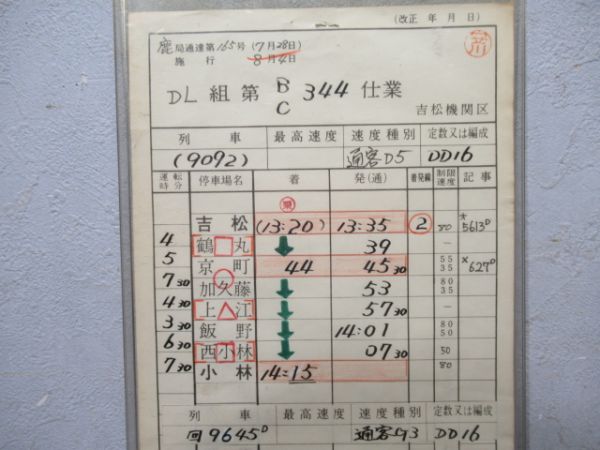 (改正 年 月 日)
鹿局運達第165号(7月28日)
施行 8月4日
DL 組第 B C 344 仕業
吉松機関区
列車 最高速度 速度種別 定数又は編成
(9092) 通客D5 DD16
運転時分 停車場名 着 発(通) 着発線 制限速度 記事
吉松 (13:20) 13:35 ② 80 *5613D
4 鶴丸 39 −
5 京町 44 45 30 55 35 ×627D
7 30 加久藤 53 80 35
4 30 上江 57 30 −
3 30 飯野 14:01 80 50
6 30 西小林 07 30 50
7 30 小林 14:15 80
列車 最高速度 速度種別 定数又は編成
回9645D 通客G3 DD16